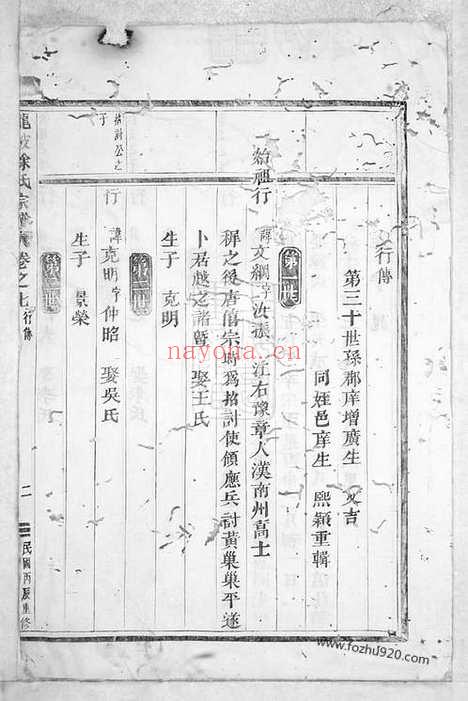 行傳
第三十世孫郡庠增廣生 又吉
同姪邑庠生 熙穎重輯
第一世
始祖行 諱文綱字汝振 江右豫章人漢南州高士
穉之後唐僖宗時爲招討使領應兵討黃巢巢平遂
卜君越之諸暨 娶王氏
生子 克明
第二世
招討公之子
行 諱克明字仲昭 娶吳氏
生子 景榮
第三世
徐氏宗譜 卷之七 行傳
二
民國丙辰重修
nayona.cn
www.fozhu920.com